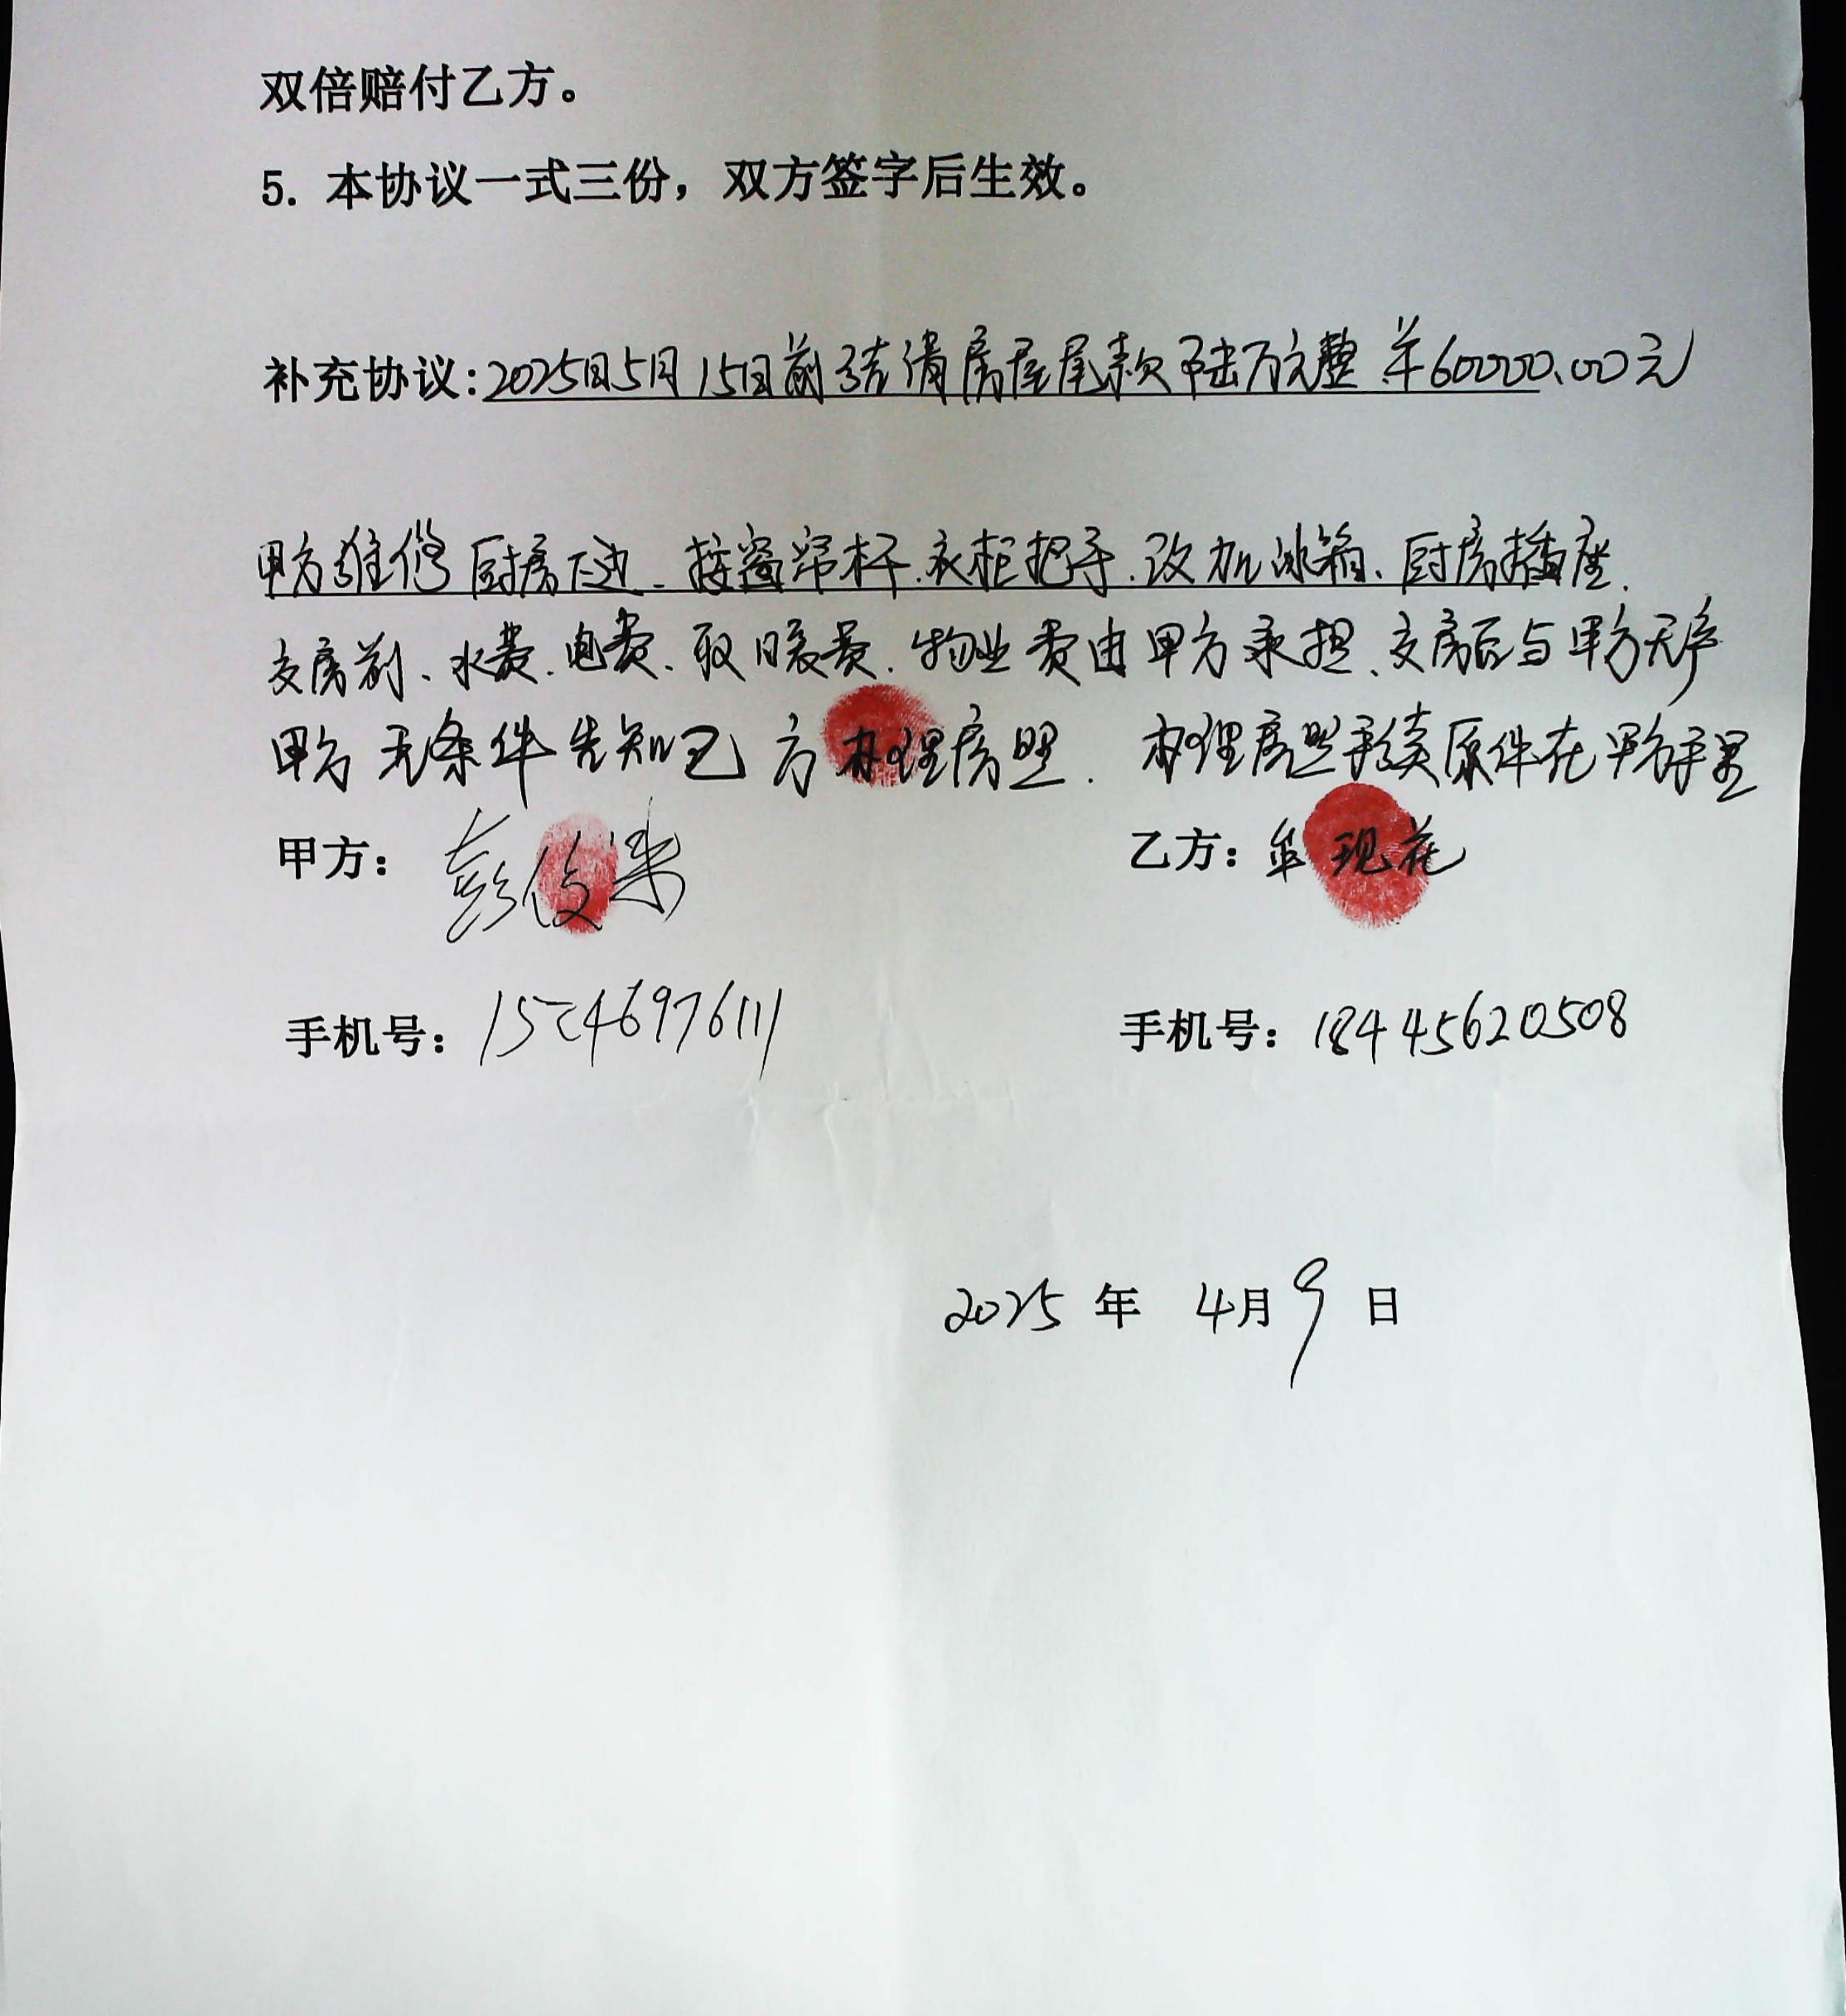 双倍赔付乙方。
5. 本协议一式三份，双方签字后生效。
补充协议：2025日5月15日前结清房屋尾款陆万元整 羊60000.00元
甲方维修厨房下边、接窗帘杆、衣柜把手、改加冰箱、厨房插座、
交房前、水费、电费、取暖费、物业费由甲方承担、交房后与甲方无
甲方无条件告知已方办理房照、办理房照手续原件在甲方手里
甲方： 彭俊 乙方： 现花
手机号： 1546976111 手机号： 18445620508
2025 年 4月9 日